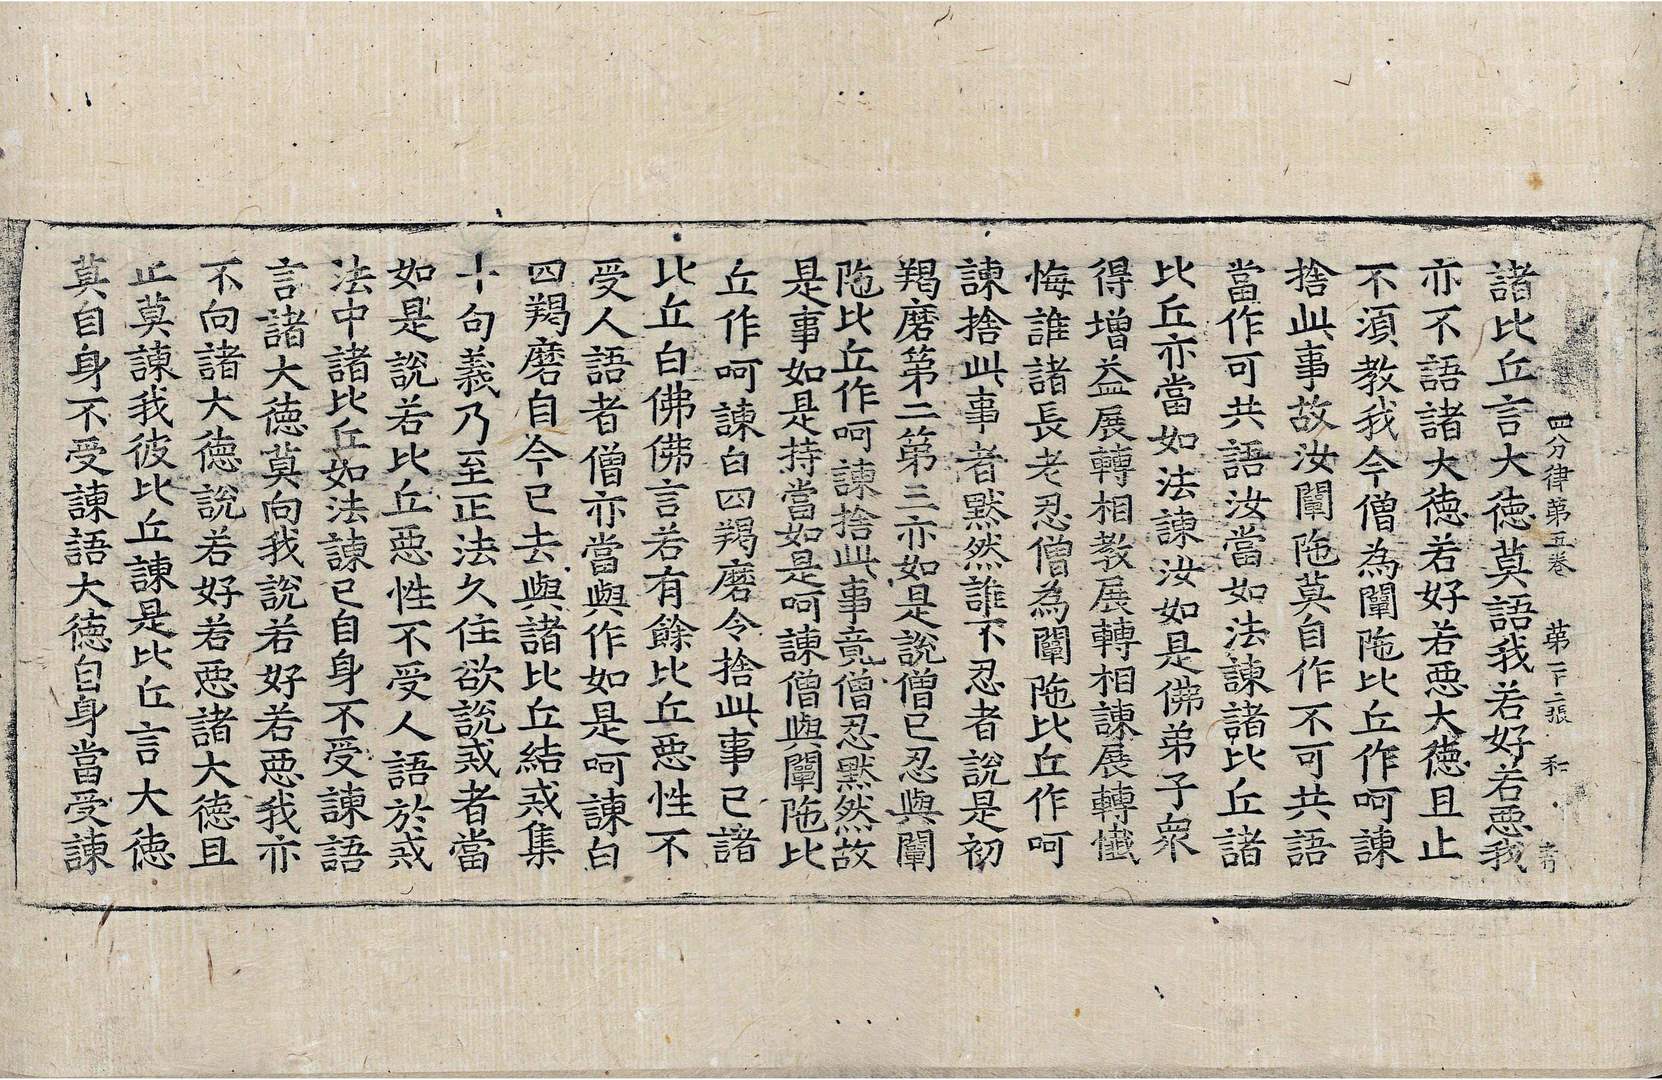 四分律第五卷 第二十二張 和
諸比丘言大德莫語我若好若惡我
亦不語諸大德若好若惡大德且止
不湏教我今僧為闡陁比丘作呵諫
捨此事故汝闡陁莫自作不可共語
當作可共語汝當如法諫諸比丘諸
比丘亦當如法諫汝如是佛弟子眾
得增益展轉相教展轉相諫展轉懺
悔誰諸長老忍僧為闡陁比丘作呵
諫捨此事者默然誰不忍者說是初
羯磨第二第三亦如是說僧已忍與闡
陁比丘作呵諫捨此事竟僧忍默然故
是事如是持當如是呵諫僧與闡陁比
丘作呵諫白四羯磨令捨此事已諸
比丘白佛佛言若有餘比丘惡性不
受人語者僧亦當與作如是呵諫白
四羯磨自今已去與諸比丘結戒集
十句義乃至正法久住欲說戒者當
如是說若比丘惡性不受人語於戒
法中諸比丘如法諫已自身不受諫語
言諸大德莫向我說若好若惡我亦
不向諸大德說若好若惡諸大德且
止莫諫我彼比丘諫是比丘言大德
莫自身不受諫語大德自身當受諫